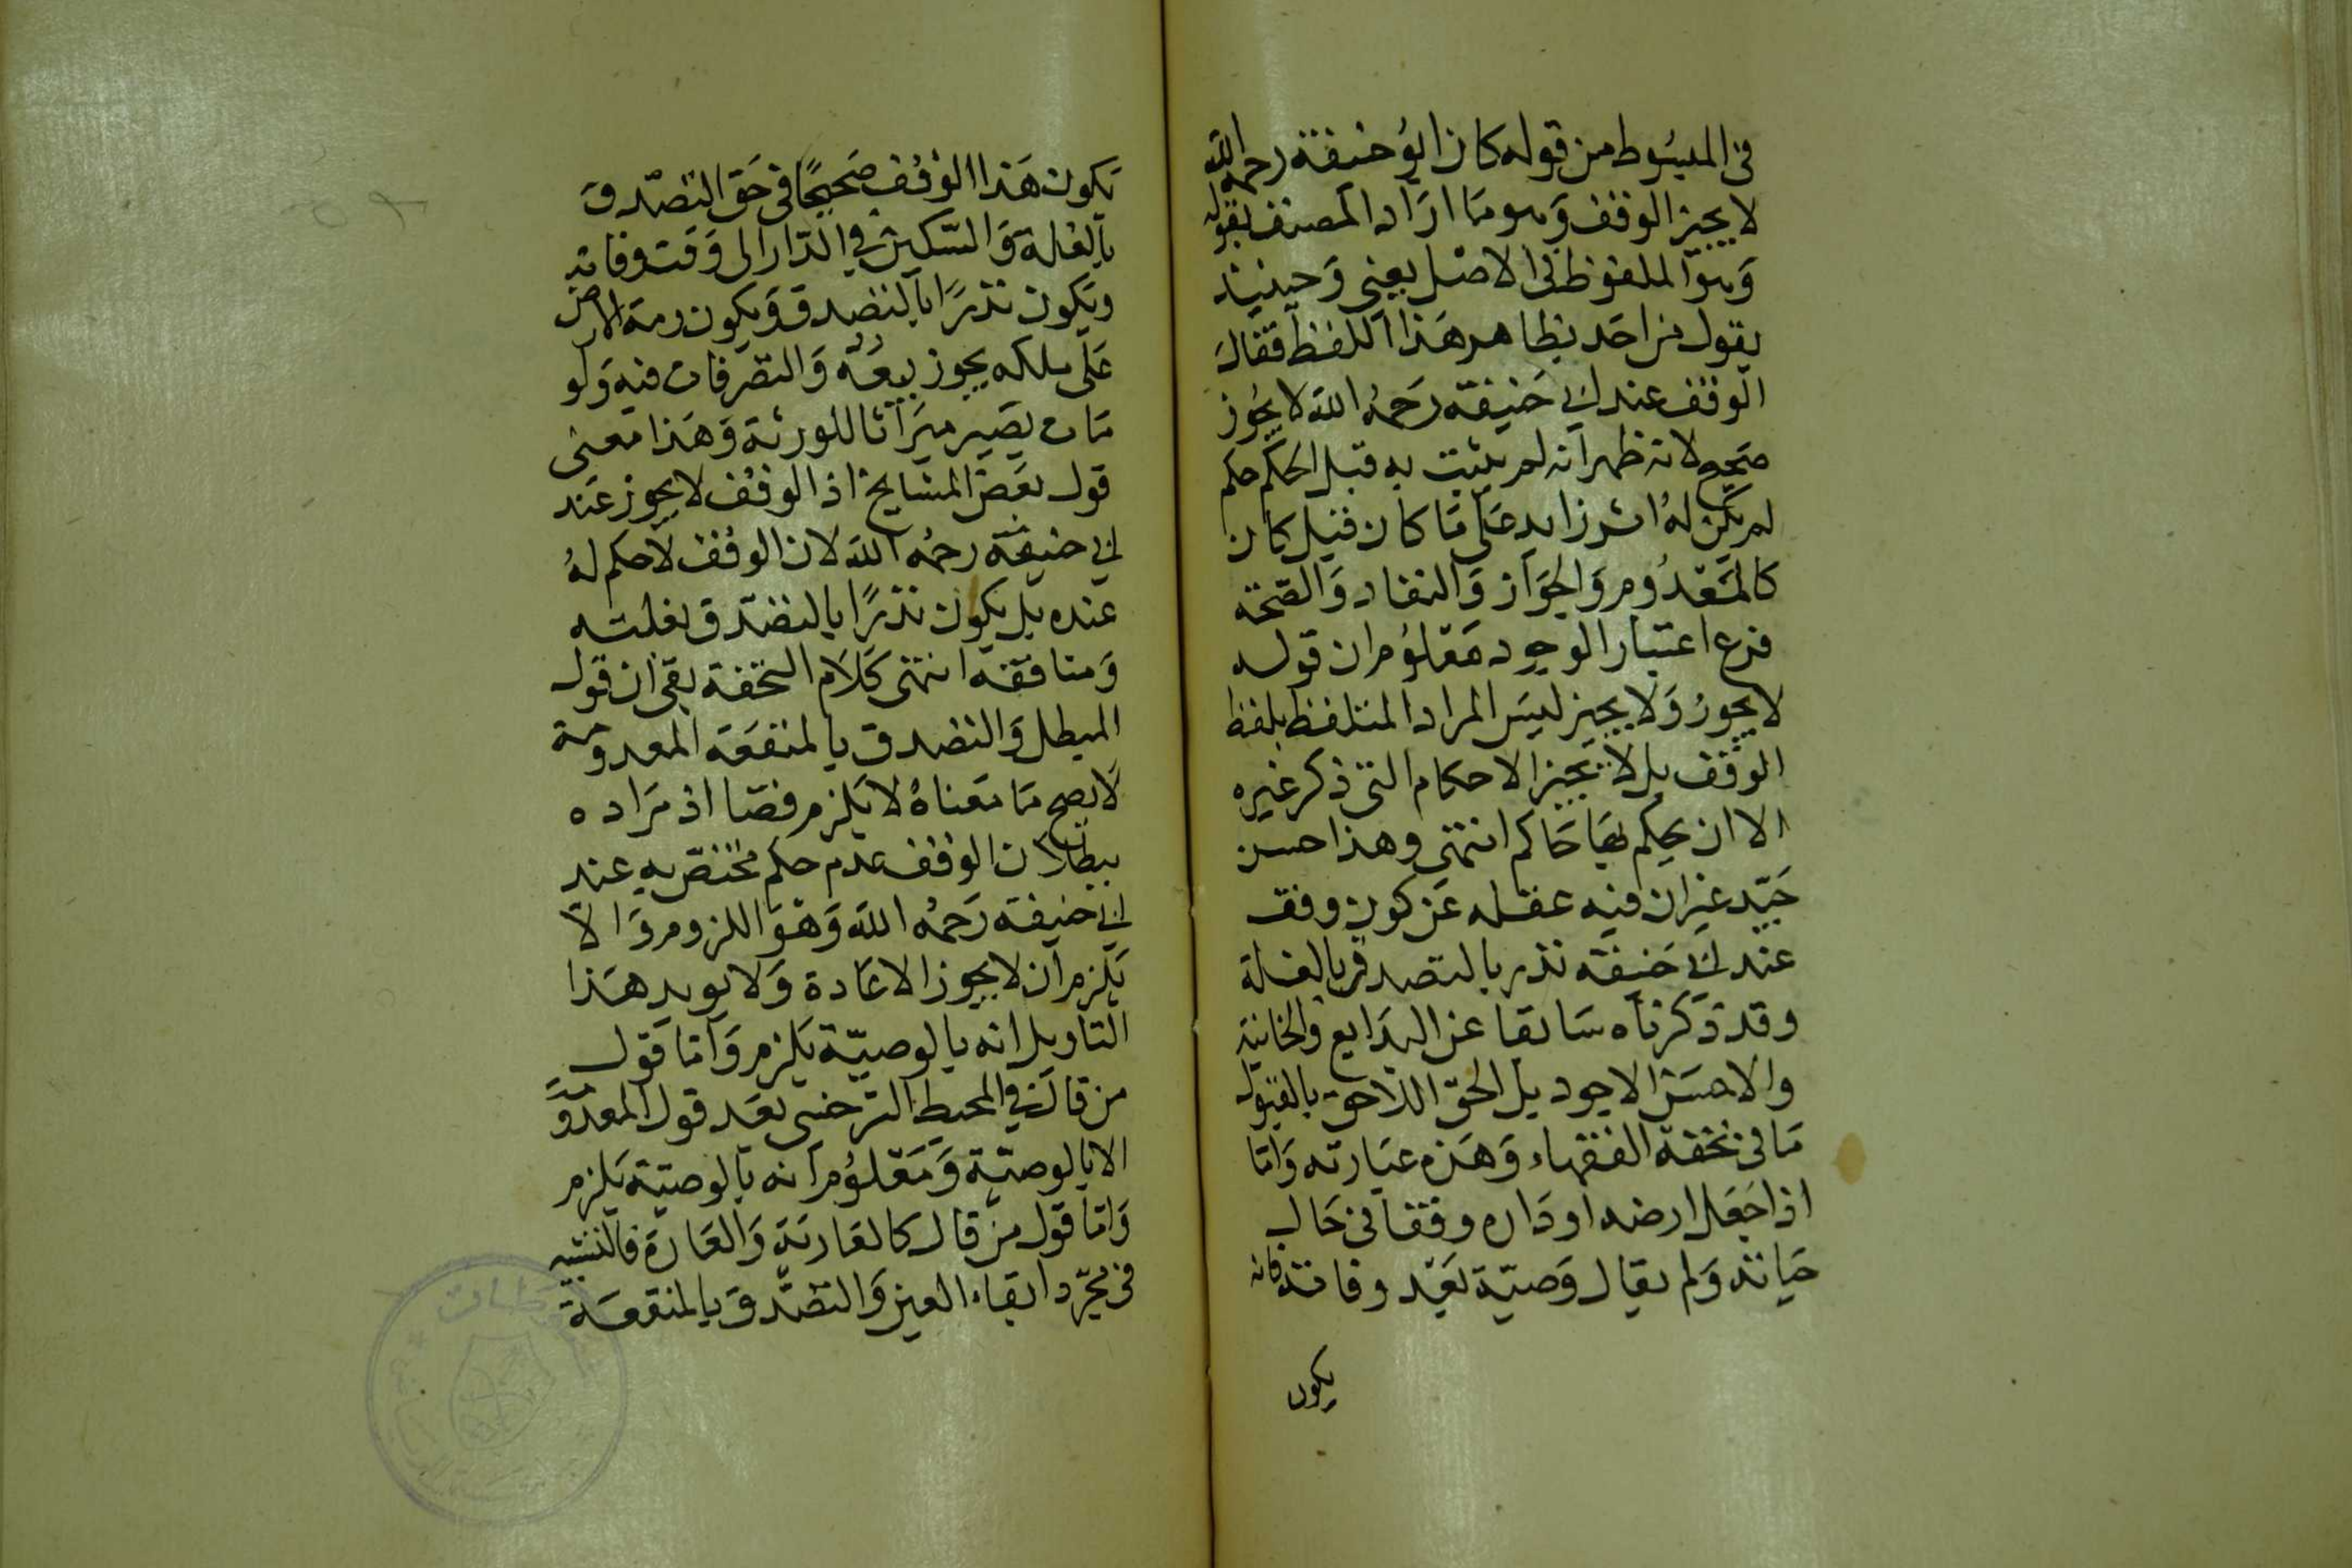 فى المبسوط من قوله كان ابو حنيفة رحمه الله
لا يجيز الوقف وهو ما اراد المصنف بقوله
وهو الملفوظ فى الاصل يعنى وحينئذ
يقول من احد بظاهر هذا اللفظ فقال
الوقف عند ابى حنيفة رحمه الله لا يجوز
صحيح لانه ظهر انه لم يثبت به قبل الحكم حكم
لم يكن له اثر زايد على ما كان قبل كان
كالمعدوم والجواز والنفاد والصحة
فرع اعتبار الوجود معلوم ان قوله
لا يجوز ولا يجيز ليس المراد المتلفظ بلفظ
الوقف بل لا يجيز الاحكام التى ذكر غيره
الا ان يحكم بها حاكم انتهى وهذا حسن
جيد غير ان فيه عفله عن كون وقف
عند ابى حنيفة نذر بالتصدق بالغلة
وقد ذكرناه سابقا عن البدايع والخانية
والاحسن الاجود بل الحق اللاحق بالقبول
ما فى تحفة الفقهاء وهذه عبارته واما
اذا جعل ارضه او داره وقفا فى حال
حياته ولم يقال وصية بعد وفاته فانه
يكون
تكون هذا الوقف صحيحا فى حق التصدق
بالغلة والسكين فى الدار الى وقت وفاته
ويكون نذرا بالتصدق ويكون رمة الارض
على ملكه يجوز بيعه والتصرفات فيه ولو
مات يصير ميراثا للورثة وهذا معنى
قول بعض المشايخ اذ الوقف لا يجوز عند
ابى حنيفة رحمه الله لان الوقف لا حكم له
عنده بل يكون نذرا بالتصدق بغلته
ومنافقه انتهى كلام التحفة بقى ان قول
المبطل والتصدق بالمنفعة المعدومة
لا يصح ما معناه لا يلزم فصا اذ مراده
ببطلان الوقف عدم حكم مختص به عند
ابى حنيفة رحمه الله وهو اللزوم والا
يلزم ان لا يجوز الاعادة ولا يويد هذا
التاويل انه بالوصية يلزم واما قول
من قال فى المحيط السرخسى بعد قول المعدوم
الا بالوصية ومعلوم انه بالوصية يلزم
واما قول من قال كالعارية والعارة فالتشبيه
فى مجرد ابقاء العين والتصدق بالمنفعة